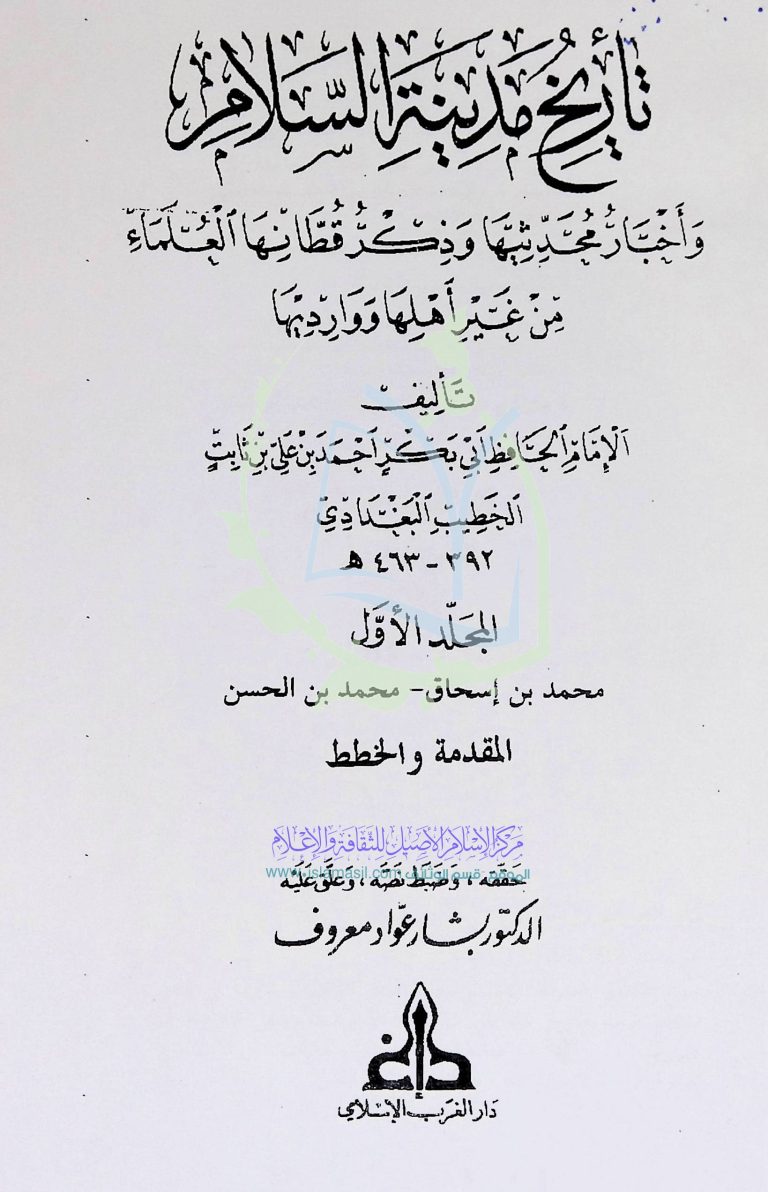 تَأْرِيخُ مَدِينَةِ السَّلَامِ
وَأَخْبَارُ مُحَدِّثِيهَا وَذِكْرُ قُطَّانِهَا الْعُلَمَاءِ
مِنْ غَيْرِ أَهْلِهَا وَوَارِدِيهَا
تَأْلِيف
الْإِمَامِ الْحَافِظِ أَبِي بَكْرٍ أَحْمَدَ بْنِ عَلِيِّ بْنِ ثَابِتٍ
الْخَطِيبِ الْبَغْدَادِيِّ
٣٩٢ - ٤٦٣ هـ
المجلّد الأوّل
محمد بن إسحاق - محمد بن الحسن
المقدمة والخطط
مركز الإسلام الأصيل للثقافة والإعلام
الموقع: قسم الوثائق www.islamasil.com
حَقَّقَهُ، وَضَبَطَ نَصَّهُ، وَعَلَّقَ عَلَيْهِ
الدكتور بشار عوّاد معروف
دار الغرب الإسلامي